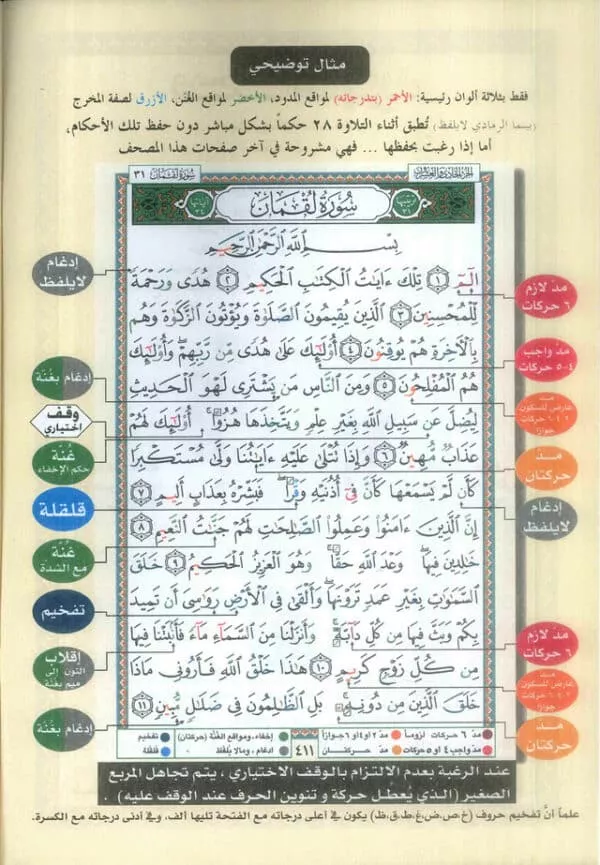 مثال توضيحي
فقط بثلاثة ألوان رئيسية: الأحمر (بتدرجاته) لمواقع المدود، الأخضر لمواقع الغُنَن، الأزرق لصفة المخرج
(بينما الرمادي لايلفظ) تُطبق أثناء التلاوة ٢٨ حكماً بشكل مباشر دون حفظ تلك الأحكام،
أما إذا رغبت بحفظها ... فهي مشروحة في آخر صفحات هذا المصحف
الجزء الحادي والعشرون
سُورَةُ لُقْمَان ٣١
سُورَةُ لُقْمَانَ
بِسْمِ اللَّهِ الرَّحْمَٰنِ الرَّحِيمِ
الٓمٓ ۝١ تِلْكَ ءَايَٰتُ الْكِتَٰبِ الْحَكِيمِ ۝٢ هُدًى وَرَحْمَةً
لِّلْمُحْسِنِينَ ۝٣ الَّذِينَ يُقِيمُونَ الصَّلَوٰةَ وَيُؤْتُونَ الزَّكَوٰةَ وَهُم
بِالْأَخِرَةِ هُمْ يُوقِنُونَ ۝٤ أُوْلَٰٓئِكَ عَلَىٰ هُدًى مِّن رَّبِّهِمْ وَأُوْلَٰٓئِكَ
هُمُ الْمُفْلِحُونَ ۝٥ وَمِنَ النَّاسِ مَن يَشْتَرِى لَهْوَ الْحَدِيثِ
لِيُضِلَّ عَن سَبِيلِ اللَّهِ بِغَيْرِ عِلْمٍ وَيَتَّخِذَهَا هُزُوًا أُوْلَٰٓئِكَ لَهُمْ
عَذَابٌ مُّهِينٌ ۝٦ وَإِذَا تُتْلَىٰ عَلَيْهِ ءَايَٰتُنَا وَلَّىٰ مُسْتَكْبِرًا
كَأَن لَّمْ يَسْمَعْهَا كَأَنَّ فِىٓ أُذُنَيْهِ وَقْرًا فَبَشِّرْهُ بِعَذَابٍ أَلِيمٍ ۝٧
إِنَّ الَّذِينَ ءَامَنُوا وَعَمِلُوا الصَّٰلِحَٰتِ لَهُمْ جَنَّٰتُ النَّعِيمِ ۝٨
خَٰلِدِينَ فِيهَا وَعْدَ اللَّهِ حَقًّا وَهُوَ الْعَزِيزُ الْحَكِيمُ ۝٩ خَلَقَ
السَّمَٰوَٰتِ بِغَيْرِ عَمَدٍ تَرَوْنَهَا وَأَلْقَىٰ فِى الْأَرْضِ رَوَٰسِىَ أَن تَمِيدَ
بِكُمْ وَبَثَّ فِيهَا مِن كُلِّ دَآبَّةٍ وَأَنزَلْنَا مِنَ السَّمَآءِ مَآءً فَأَنۢبَتْنَا فِيهَا
مِن كُلِّ زَوْجٍ كَرِيمٍ ۝١٠ هَٰذَا خَلْقُ اللَّهِ فَأَرُونِى مَاذَا
خَلَقَ الَّذِينَ مِن دُونِهِ بَلِ الظَّٰلِمُونَ فِى ضَلَٰلٍ مُّبِينٍ ۝١١
مدّ لازم
٦ حركات
مدّ واجب
٤-٥ حركات
مد
عارض للسكون
٢-٤-٦ حركات
جوازاً
مد
حركتان
إدغام
لايلفظ
مدّ لازم
٦ حركات
مد
عارض للسكون
٢-٤-٦ حركات
جوازاً
مد
حركتان
إدغام
لايلفظ
إدغام بغُنة
وقف
اختياري
غُنّة
حكم الإخفاء
قلقلة
غُنّة
مع الشدة
تفخيم
إقلاب
النون إلى
ميم بغُنة
إدغام بغُنة
مدّ ٦ حركات لزوماً
مدّ ٢ أو ٤ أو ٦ جوازاً
إخفاء، ومواقع الغُنَّة (حركتان)
تفخيم
مدّ واجب ٤ أو ٥ حركات
مدّ حركتان
٤١١
إدغام ، ومالا يُلفَظ
قلقلة
عند الرغبة بعدم الالتزام بالوقف الاختياري ، يتم تجاهل المربع
الصغير (الذي يُعطل حركة و تنوين الحرف عند الوقف عليه) .
علماً أنَّ تفخيم حروف (خ،ص،ض،غ،ط،ق،ظ) يكون في أعلى درجاته مع الفتحة تليها ألف، وفي أدنى درجاته مع الكسرة.